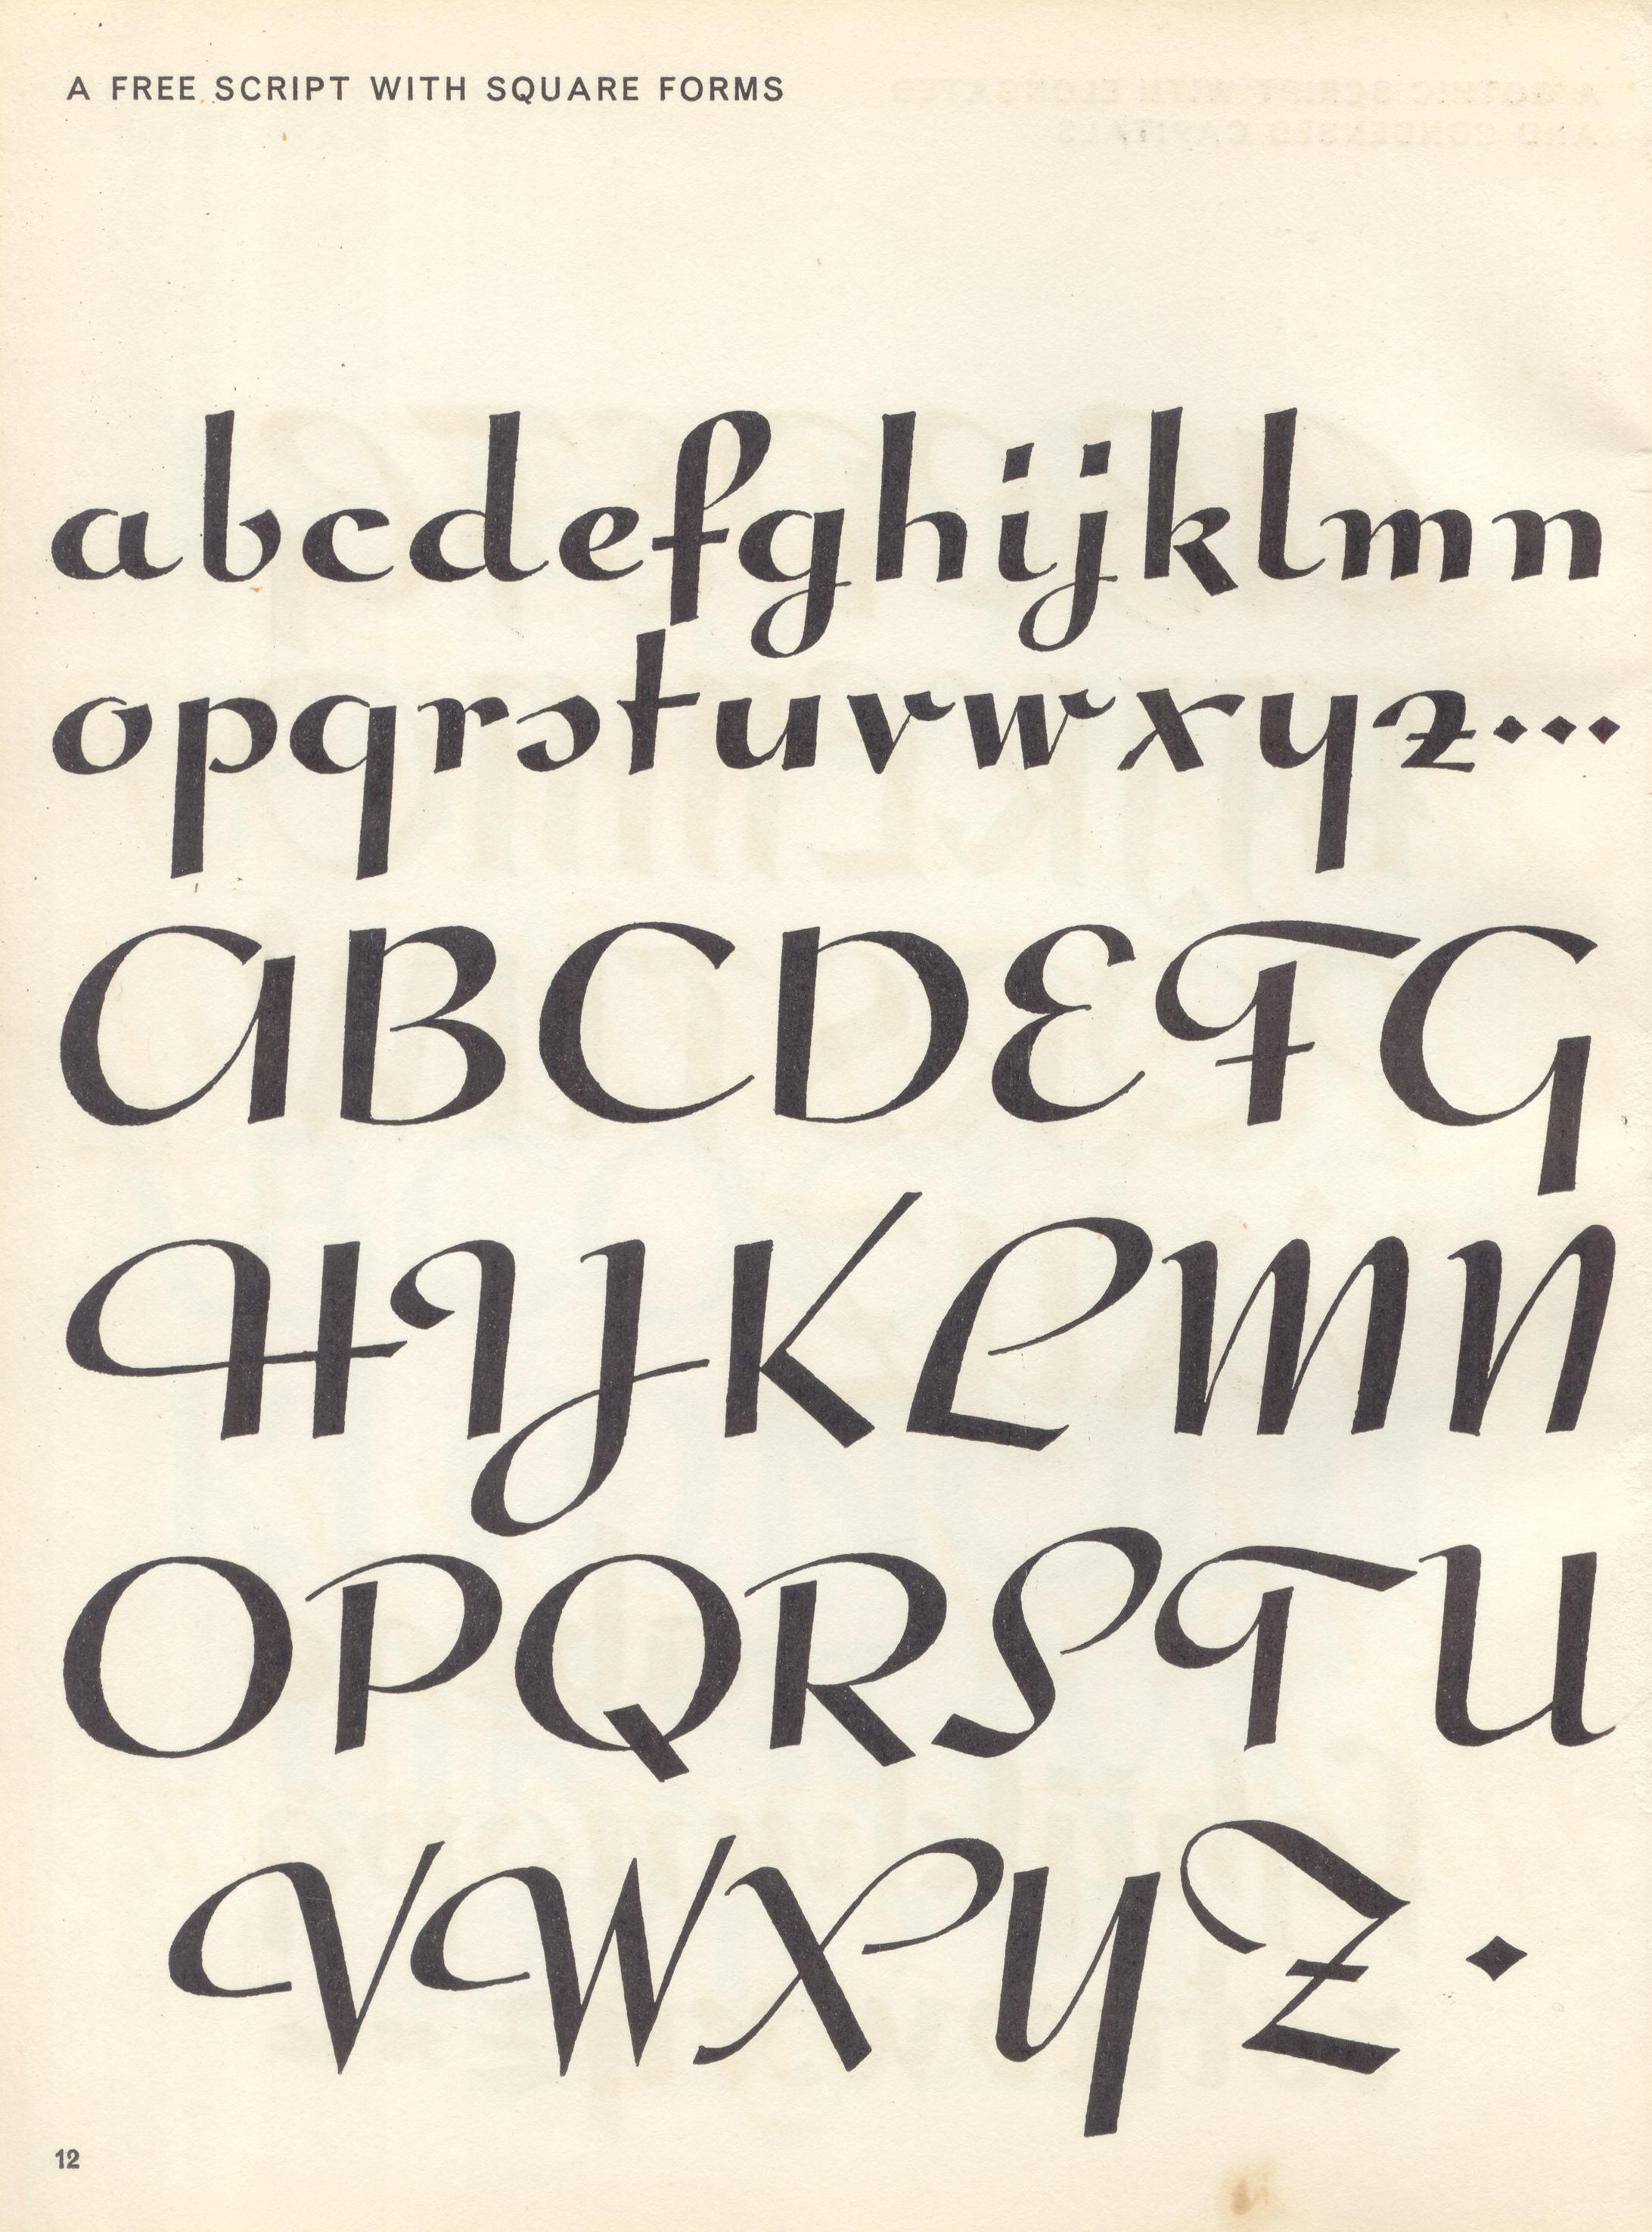 A FREE SCRIPT WITH SQUARE FORMS
abcdefghijklmn
opqrstuvwxyz...
ABCDEFG
HIJKLMN
OPQRSTU
VWXYZ.
12